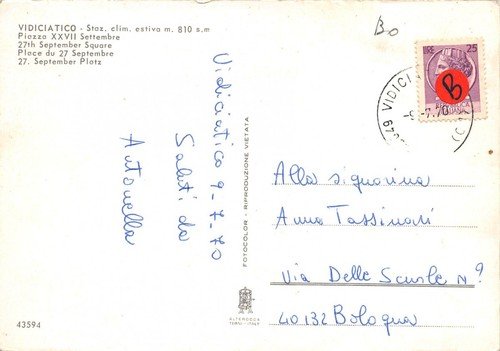 VIDICIATICO - Staz. clim. estiva m. 810 s.m
Piazza XXVII Settembre
27th September Square
Place du 27 Septembre
27. September Plotz
Vidiciatico 9-7-70
Saluti da
Antonella
43594
FOTOCOLOR - RIPRODUZIONE VIETATA
ALTEROCCA
TERNI - ITALY
Bo
LIRE 25
B
VIDICI
7.70
Alla signorina
Anna Tassinari
Via Delle Scuole Nº 9
40132 Bologna